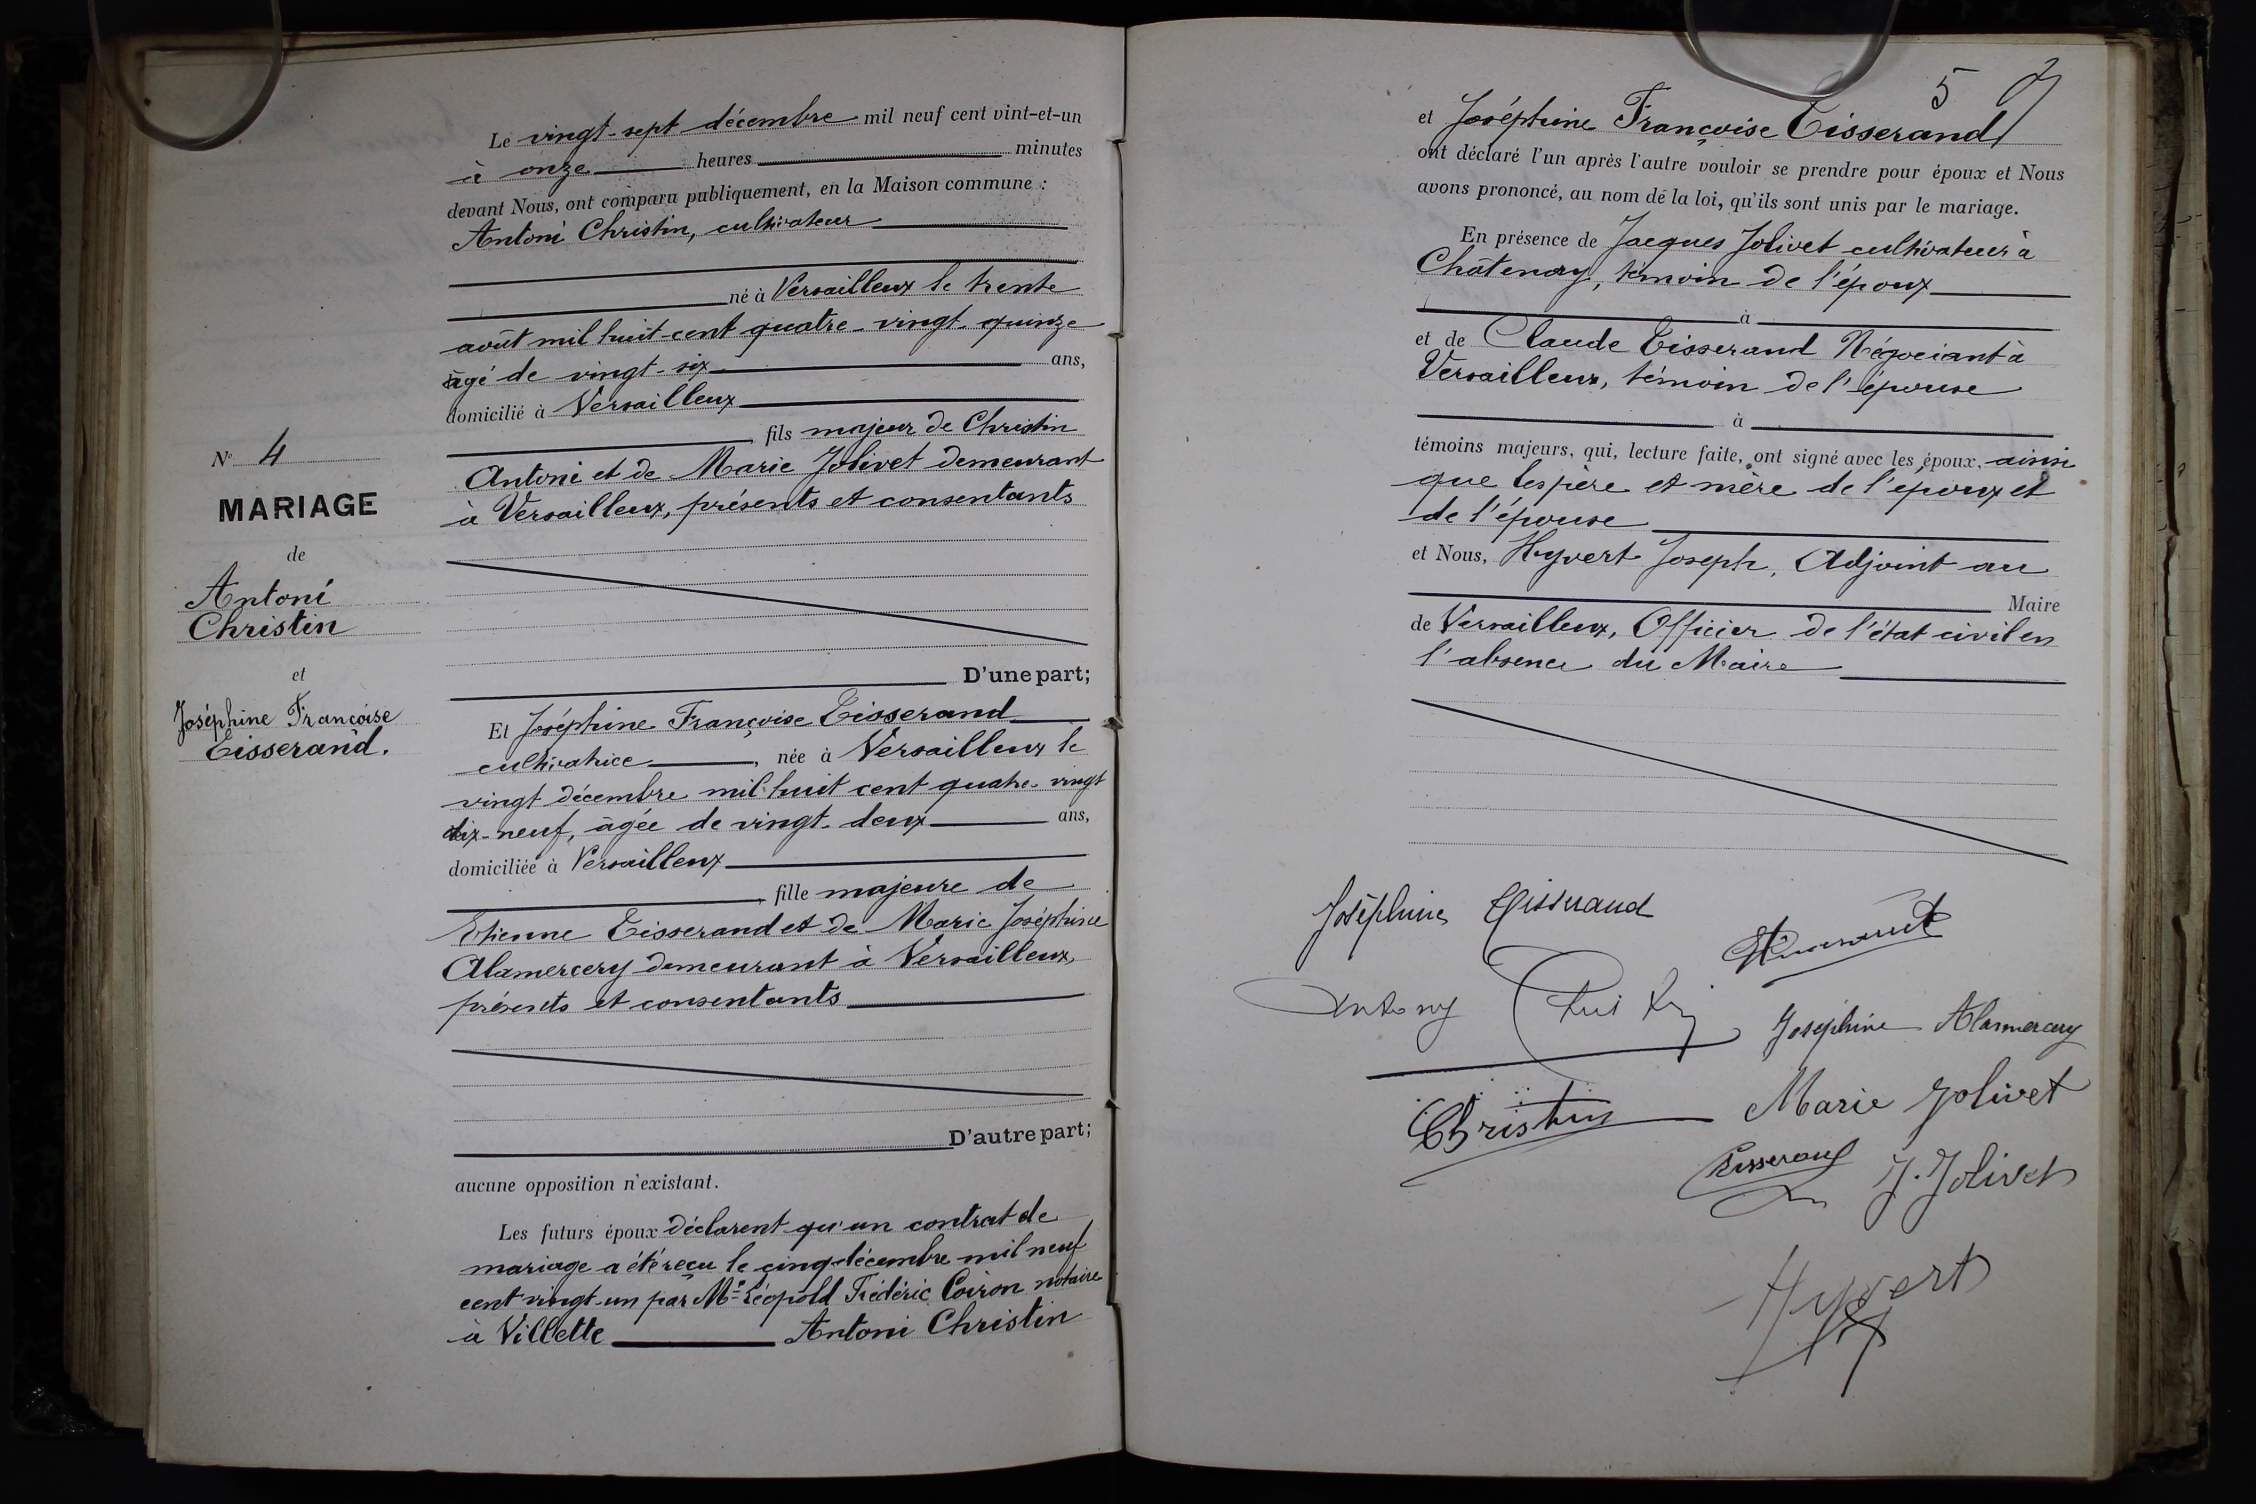 Le vingt-sept décembre mil neuf cent vint-et-un
à onze heures minutes
devant Nous, ont comparu publiquement, en la Maison commune :
Antoni Christin, cultivateur
né à Versailleux le trente
août mil huit-cent quatre-vingt-quinze
âgé de vingt-six ans,
domicilié à Versailleux
, fils majeur de Christin
Antoni et de Marie Jolivet demeurant
à Versailleux, présents et consentants
D'une part;
N° 4
MARIAGE
de
Antoni
Christin
et
Joséphine Françoise
Tisserand.
Et Joséphine Françoise Tisserand
cultivatrice , née à Versailleux le
vingt décembre mil huit cent quatre-vingt
dix-neuf, âgée de vingt-deux ans,
domiciliée à Versailleux
, fille majeure de
Etienne Tisserand et de Marie Joséphine
Alamercery demeurant à Versailleux,
présents et consentants
D'autre part;
aucune opposition n'existant.
Les futurs époux déclarent qu'un contrat de
mariage a été reçu le cinq décembre mil neuf
cent vingt-un par Me Léopold Frédéric Coiron notaire
à Villette Antoni Christin
5
et Joséphine Françoise Tisserand
ont déclaré l'un après l'autre vouloir se prendre pour époux et Nous
avons prononcé, au nom de la loi, qu'ils sont unis par le mariage.
En présence de Jacques Jolivet cultivateur à
Châtenay, témoin de l'époux
à
et de Claude Tisserand Négociant à
Versailleux, témoin de l'épouse
à
témoins majeurs, qui, lecture faite, ont signé avec les époux, ainsi
que les père et mère de l'époux et
de l'épouse
et Nous, Hyvert Joseph, Adjoint au
Maire
de Versailleux, Officier de l'état civil en
l'absence du Maire
Joséphine Tisserand
Antony Christin
Joséphine Alamercery
Christin
Marie Jolivet
Tisserand
J. Jolivet
Hyvert